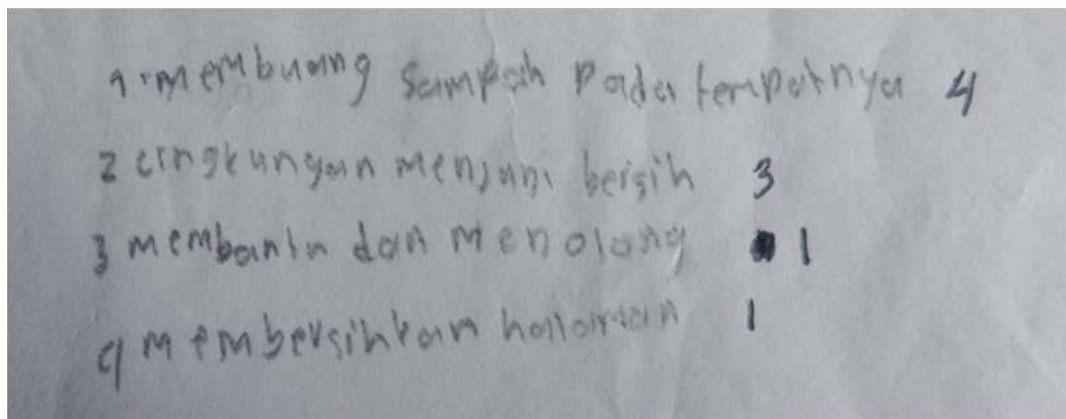 1. membuang sampah pada tempatnya 4
2 lingkungan menjani bersih 3
3 membantu dan menolong 1
4 membersihkan halaman 1